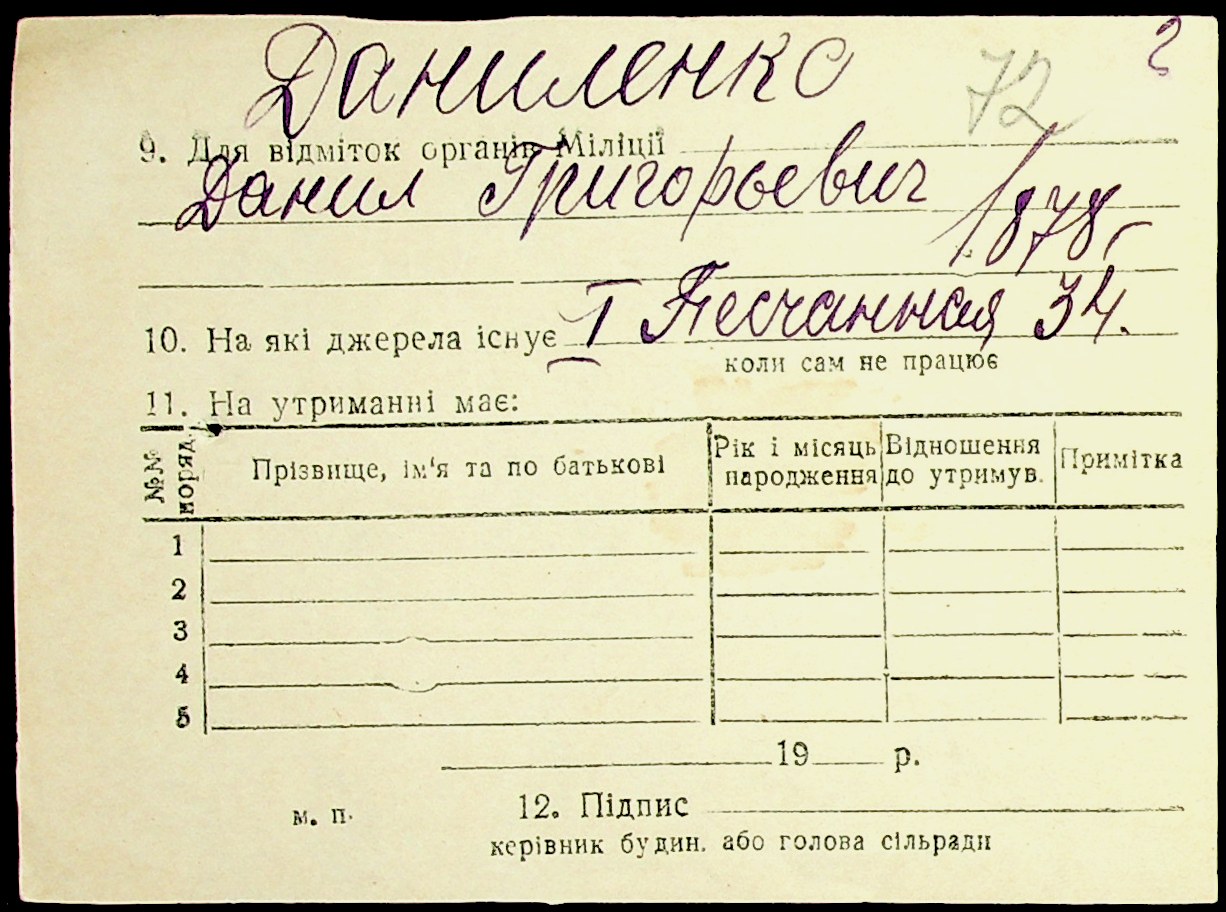 Даниленко 72 2
9. Для відміток органів Міліції
Данил Григорьевич 1878
10. На які джерела існує I Песчанная 34.
коли сам не працює
11. На утриманні має:
№№ поряд. Прізвище, ім‘я та по батькові Рік і місяць народження Відношення до утримув. Примітка
1
2
3
4
5
19 р.
м. п. 12. Підпис
керівник будин. або голова сільради